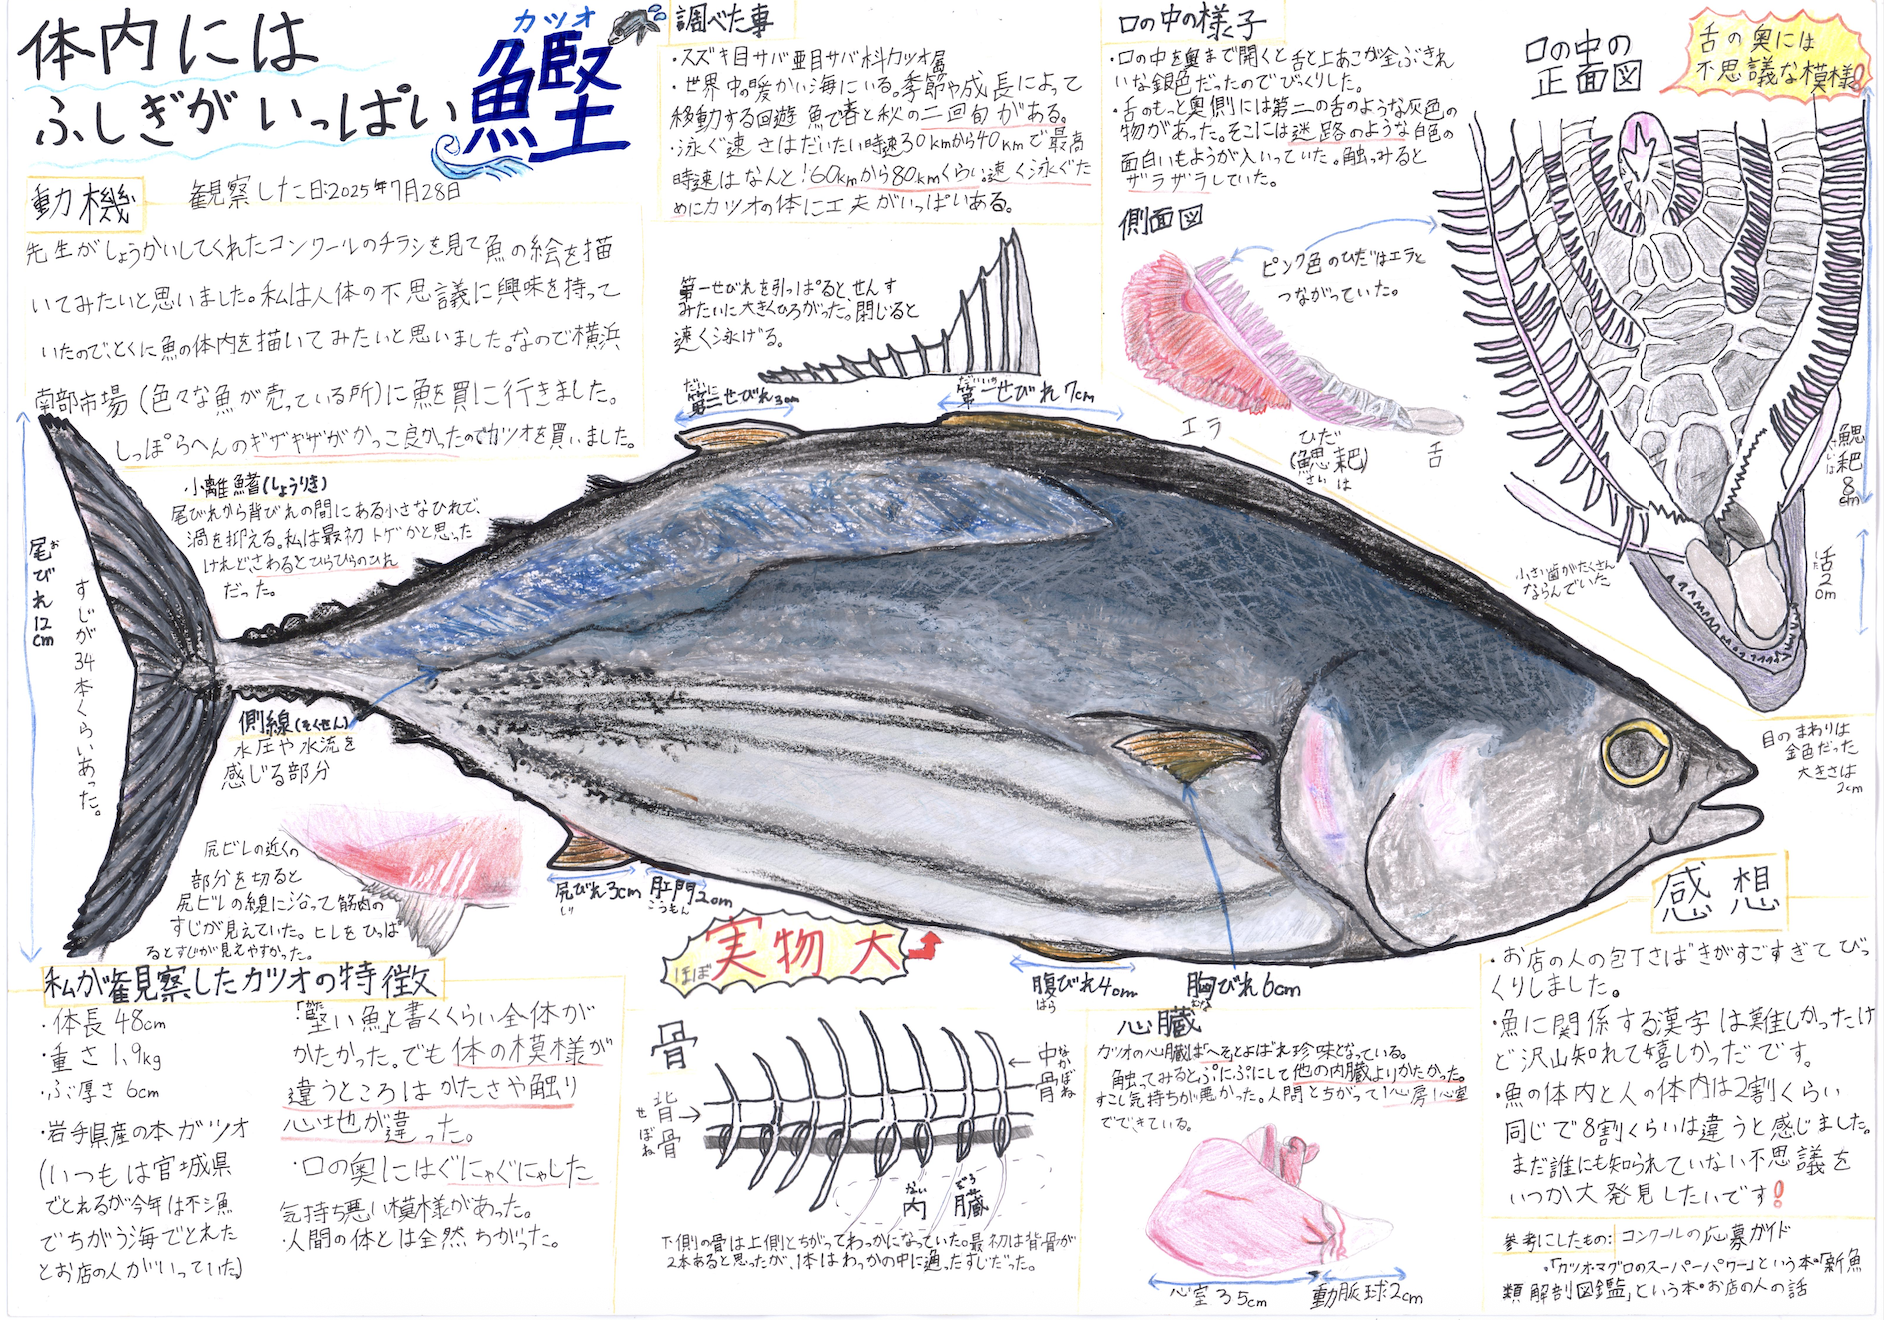 体内には
ふしぎがいっぱい
カツオ
鰹
動機
観察した日:2025年7月28日
先生がしょうかいしてくれたコンクールのチラシを見て魚の絵を描
いてみたいと思いました。私は人体の不思議に興味を持って
いたので、とくに魚の体内を描いてみたいと思いました。なので横浜
南部市場(色々な魚が売っている所)に魚を買に行きました。
しっぽらへんのギザギザがかっこ良かったのでカツオを買いました。
調べた事
・スズキ目サバ亜目サバ科カツオ属
・世界中の暖かい海にいる。季節や成長によって
移動する回遊魚で春と秋の二回旬がある。
・泳ぐ速さはだいたい時速30kmから40kmで最高
時速はなんと!60kmから80kmくらい。速く泳ぐた
めにカツオの体に工夫がいっぱいある。
第一せびれを引っぱると、せんす
みたいに大きくひろがった。閉じると
速く泳げる。
だいに
第二せびれ3cm
だいいち
第一せびれ7cm
口の中の様子
・口の中を奥まで開くと舌と上あごが全ぶきれ
いな銀色だったのでびっくりした。
・舌のもっと奥側には第二の舌のような灰色の
物があった。そこには迷路のような白色の
面白いもようが入いっていた。触ってみると
ザラザラしていた。
側面図
ピンク色のひだはエラと
つながっていた。
エラ
ひだ
(鰓耙)
さいは
舌
口の中の
正面図
舌の奥には
不思議な模様!
鰓耙8cm
さいは
舌2cm
した
小さい歯がたくさん
ならんでいた
目のまわりは
金色だった
大きさは
2cm
小離鰭(しょうりき)
尾びれから背びれの間にある小さなひれで、
渦を抑える。私は最初トゲかと思った
けれどさわるとひらひらのひれ
だった。
尾びれ12cm
お
すじが34本くらいあった。
側線(そくせん)
水圧や水流を
感じる部分
尻ビレの近くの
部分を切ると
尻ビレの線に沿って筋肉の
すじが見えていた。ヒレをひっぱ
るとすじが見えやすかった。
尻びれ3cm
しり
肛門2cm
こうもん
ほぼ実物大
腹びれ4cm
はら
胸びれ6cm
むな
私が観察したカツオの特徴
・体長48cm
・重さ1.9kg
・ぶ厚さ6cm
・岩手県産の本ガツオ
(いつもは宮城県
でとれるが今年は不漁
でちがう海でとれた
とお店の人がいっていた)
「堅い魚」と書くくらい全体が
かたかった。でも体の模様が
違うところはかたさや触り
心地が違った。
・口の奥にはぐにゃぐにゃした
気持ち悪い模様があった。
・人間の体とは全然ちがった。
骨
背骨
せぼね
中骨
なかぼね
内臓
ないぞう
下側の骨は上側とちがってわっかになっていた。最初は背骨が
2本あると思ったが、1本はわっかの中に通ったすじだった。
心臓
カツオの心臓は「へそ」とよばれ珍味となっている。
触ってみるとぷにぷにして他の内臓よりかたかった。
すこし気持ちが悪かった。人間とちがって1心房1心室
でできている。
心室3.5cm
動脈球2cm
感想
・お店の人の包丁さばきがすごすぎてびっ
くりしました。
・魚に関係する漢字は難しかったけ
ど沢山知れて嬉しかったです。
・魚の体内と人の体内は2割くらい
同じで8割くらいは違うと感じました。
まだ誰にも知られていない不思議を
いつか大発見したいです!
参考にしたもの:コンクールの応募ガイド
・「カツオ・マグロのスーパーパワー」という本・「新魚
類解剖図鑑」という本・お店の人の話